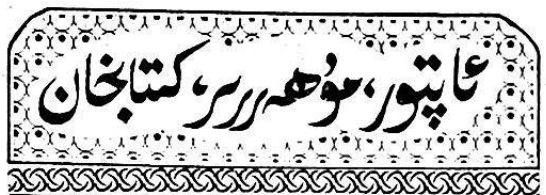 ئاپتور، مۇھەررىر، كىتابخان